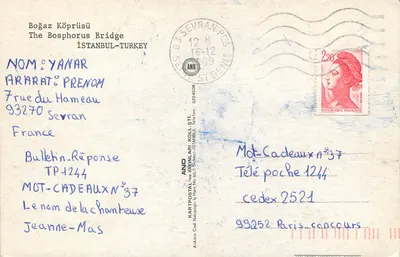 Boğaz Köprüsü
The Bosphorus Bridge
İSTANBUL-TURKEY
NOM: YANAR
ARARAT: PRENOM
7 rue du Hameau
93270 Sevran
France
Bulletin-Réponse
TP 1244
MOT-CADEAUX N°37
Le nom de la chanteuse
Jeanne-Mas
93 SEVRAN PPAL
12 H
16-12
AND
2,20
Mot-Cadeaux n°37
Télé poche 1244
cedex 2521
99252 Paris-concours